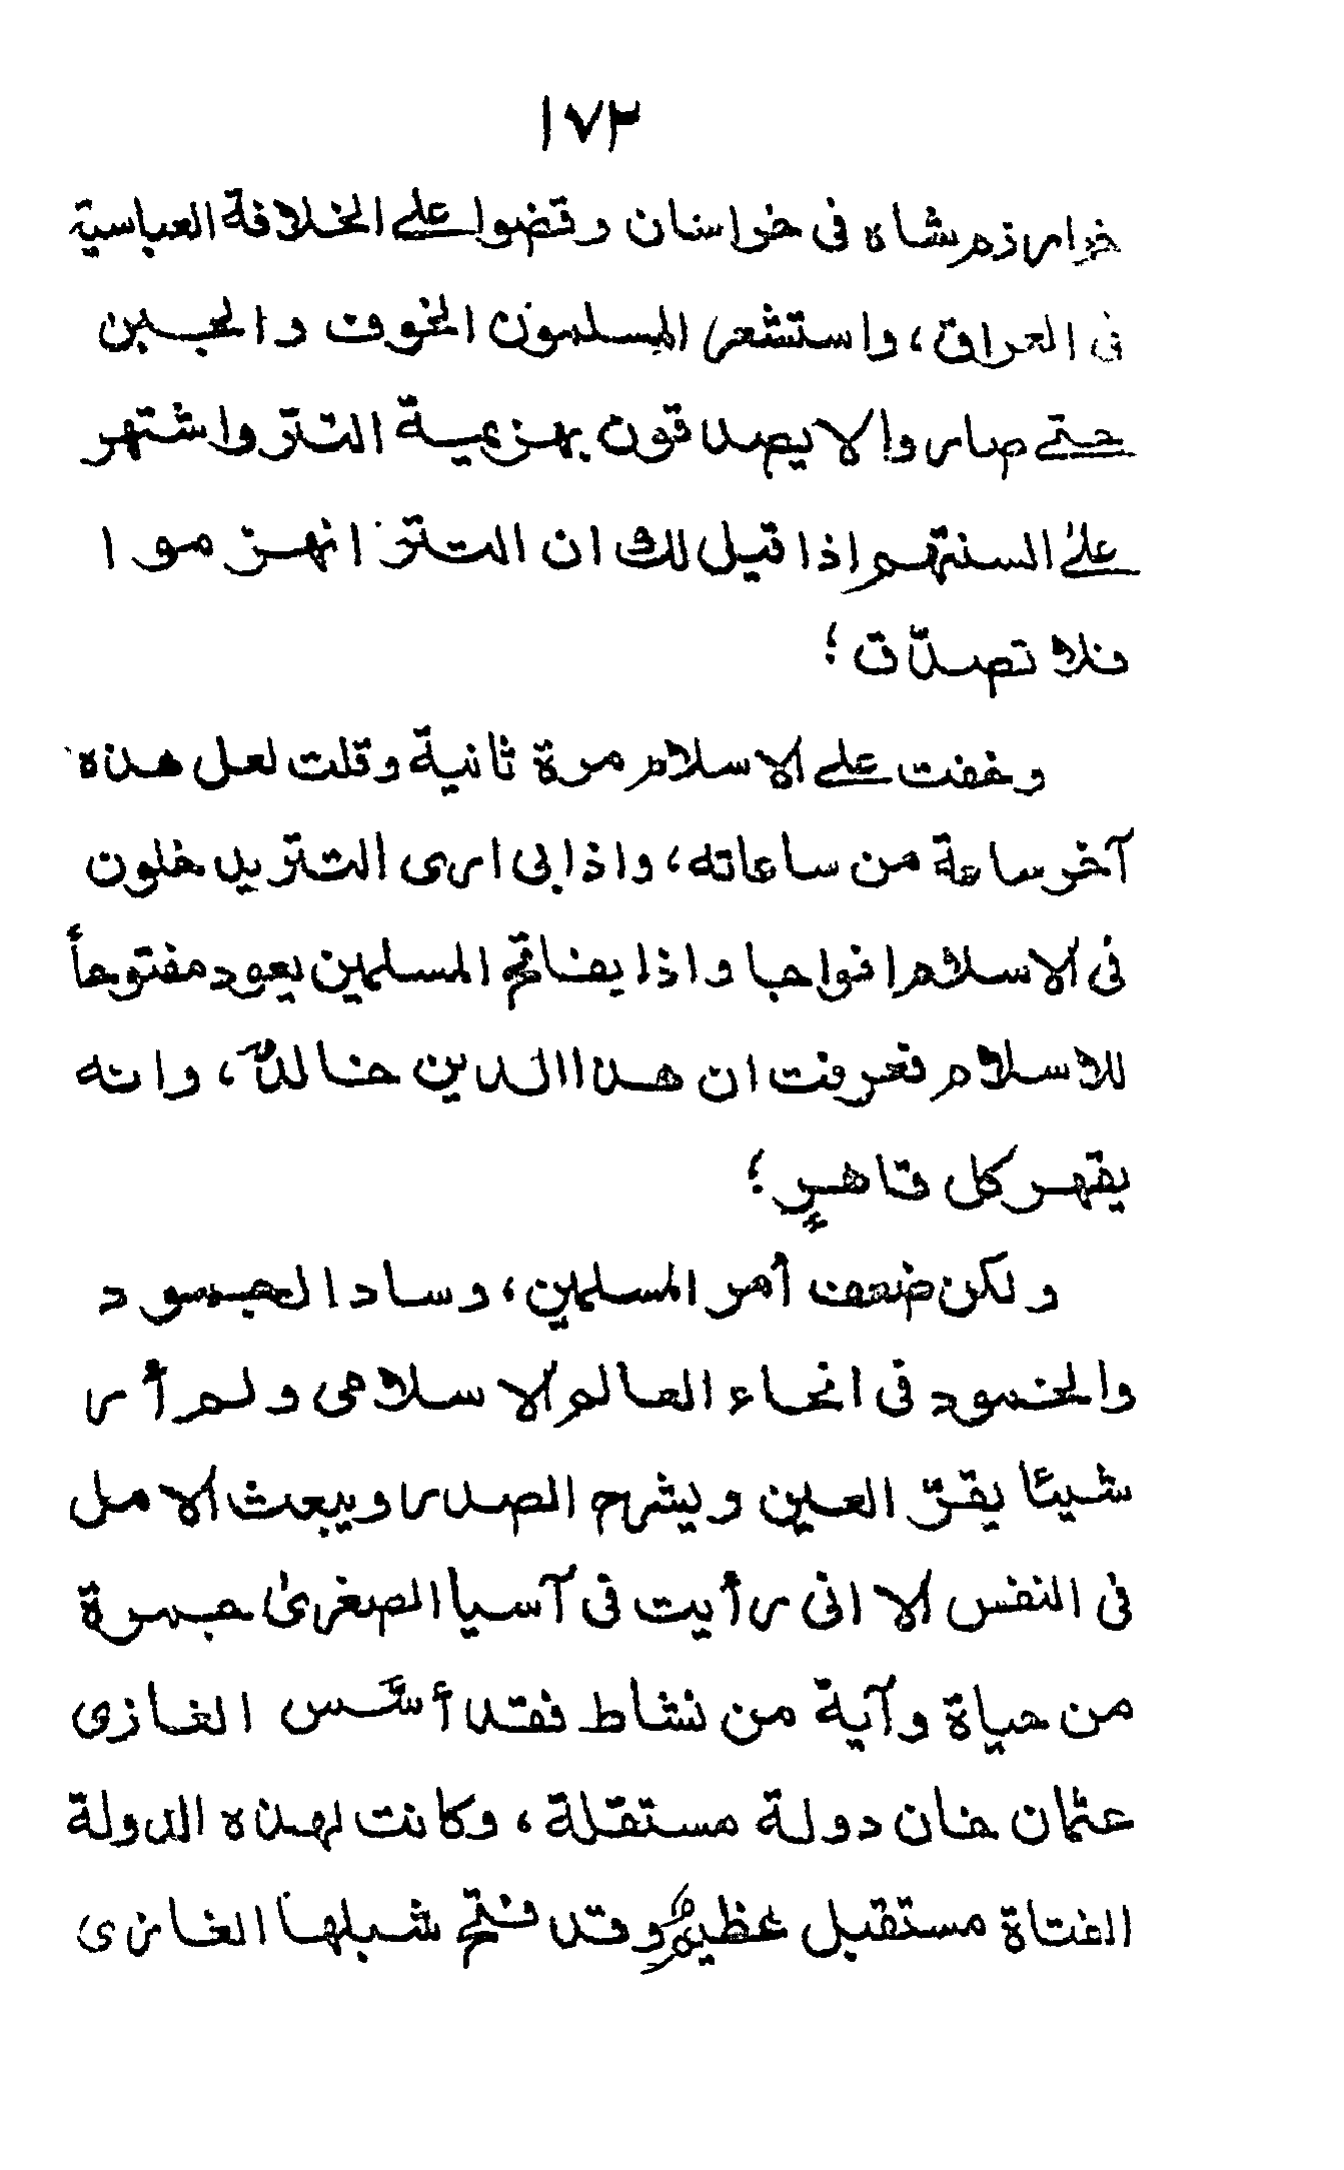 ١٧٢
خوارزم شاه فى خراسان وقضوا على الخلافة العباسية
فى العراق، واستشعر المسلمون الخوف والجبن
حتى صاروا لا يصدقون بهزيمة التتر واشتهر
على السنتهم اذا قيل لك ان التتر انهزموا
فلا تصدّق؛
وخفت على الاسلام مرة ثانية وقلت لعل هذه
آخر ساعة من ساعاته، واذا بى ارى التتر يدخلون
فى الاسلام افواجا واذا بفاتح المسلمين يعود مفتوحأ
للاسلام فعرفت ان هذا الدين خالدٌ، وانه
يقهر كل قاهرٍ؛
ولكن ضعف أمر المسلمين، وساد الجمود
والخمود فى انحاء العالم الاسلامى ولم أر
شيئا يقرّ العين ويشرح الصدر ويبعث الامل
فى النفس الا انى رأيت فى آسيا الصغرىٰ جمرة
من حياة وآية من نشاط فقد أسّس الغازى
عثمان خان دولة مستقلة، وكانت لهذه الدولة
الفتاة مستقبل عظيم وقد فتح شبلها الغازى